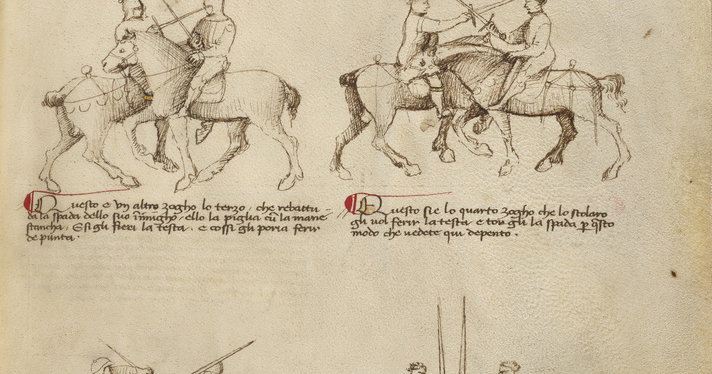 Questo e un altro zogho lo terzo, che rebattu-
da la spada dello suo inimigho, ello la piglia cu la mane
stancha, E si gli fieri la testa. e cossi gli poria ferir
de punta.
Questo si e lo quarto zogho che lo scolaro
gli vol ferir la testa e tor gli la spada p q̃sto
modo che vedete qui depento.